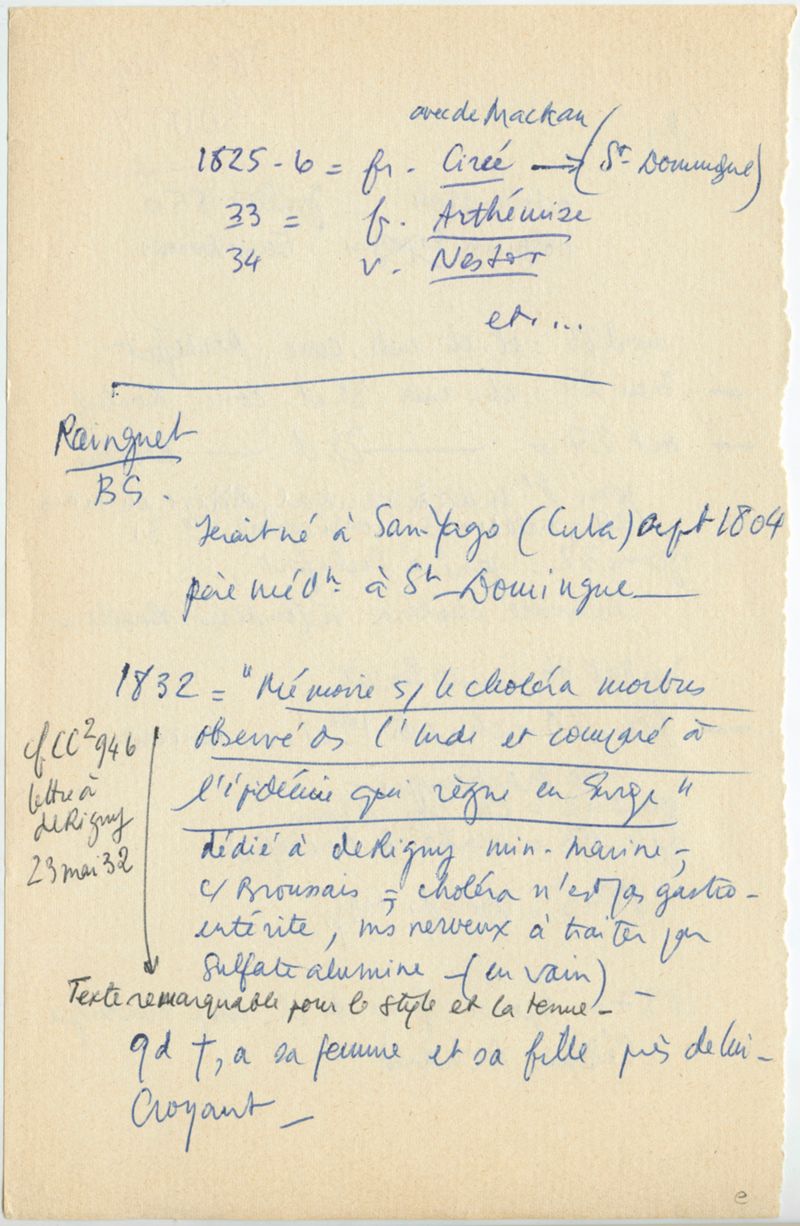 avec de Mackau
1825-6 = fr. Circé → (St Domingue)
33 = fr. Arthémize
34 v. Nestor
etc...
Rainguet
BS.
serait né à San-Yago (Cuba) sept 1804
père méd à St-Domingue
1832 = "Mémoire s/ le choléra morbus
observé ds l'Inde et comparé à
l'épidémie qui règne en Europe"
dédié à de Rigny min. marine -
c/ Broussais = choléra n'est pas gastro-
entérite, ms nerveux à traiter par
sulfate alumine - (en vain) -
cf CC² 946
lettre à
de Rigny
23 mai 32
Texte remarquable pour le style et la tenue -
qd †, a sa femme et sa fille près de lui -
Croyant -
e